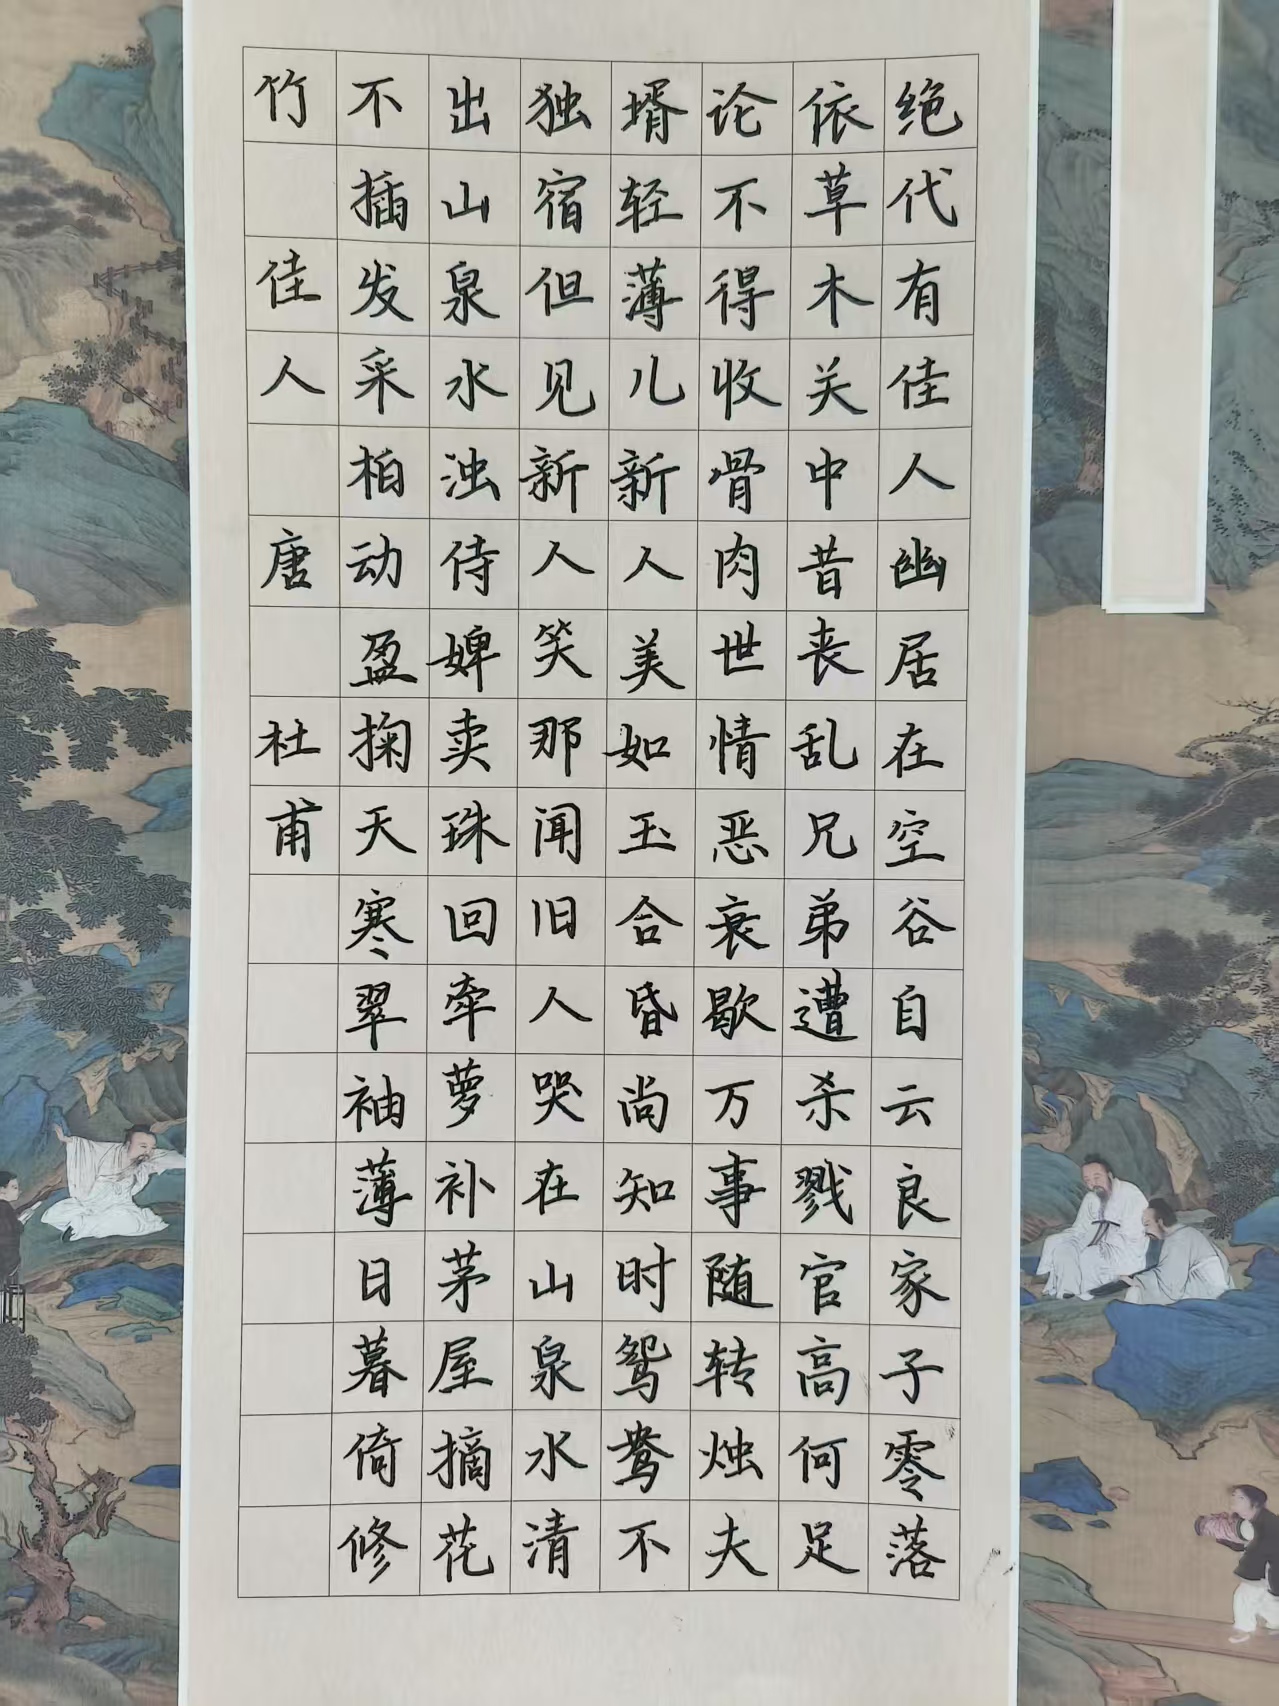 绝代有佳人幽居在空谷自云良家子零落
依草木关中昔丧乱兄弟遭杀戮官高何足
论不得收骨肉世情恶衰歇万事随转烛夫
壻轻薄儿新人美如玉合昏尚知时鸳鸯不
独宿但见新人笑那闻旧人哭在山泉水清
出山泉水浊侍婢卖珠回牵萝补茅屋摘花
不插发采柏动盈掬天寒翠袖薄日暮倚修
竹 佳人 唐 杜甫